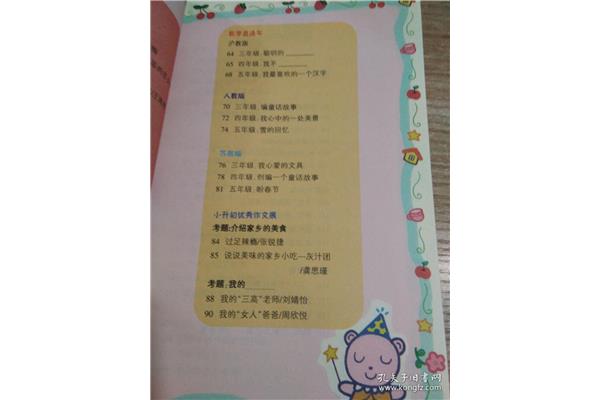 教学直通车
沪教版
64 三年级.聪明的______
65 四年级.我不______
68 五年级.我最喜欢的一个汉字
人教版
70 三年级.编童话故事
72 四年级.我心中的一处美景
74 五年级.雪的回忆
苏教版
76 三年级.我心爱的文具
78 四年级.创编一个童话故事
81 五年级.盼春节
小升初优秀作文展
考题:介绍家乡的美食
84 过足辣瘾/张锐捷
85 说说美味的家乡小吃—灰汁团
/龚思瑾
考题:我的______
88 我的“三高”老师/刘婧怡
90 我的“女人”爸爸/周欣悦
孔夫子旧书网
www.kongfz.com